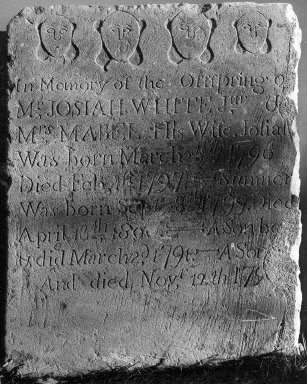 In Memory of the Offspring of
Mr. JOSIAH WHITE, Jur. &
Mrs MABEL, HE, Wife, Josiah
Was born March 1796
Died Feby. Sumner
Was born Sept. 8th 1799, Died
April 13th A Son bo
& did March A Son
And died, Novr. 12th